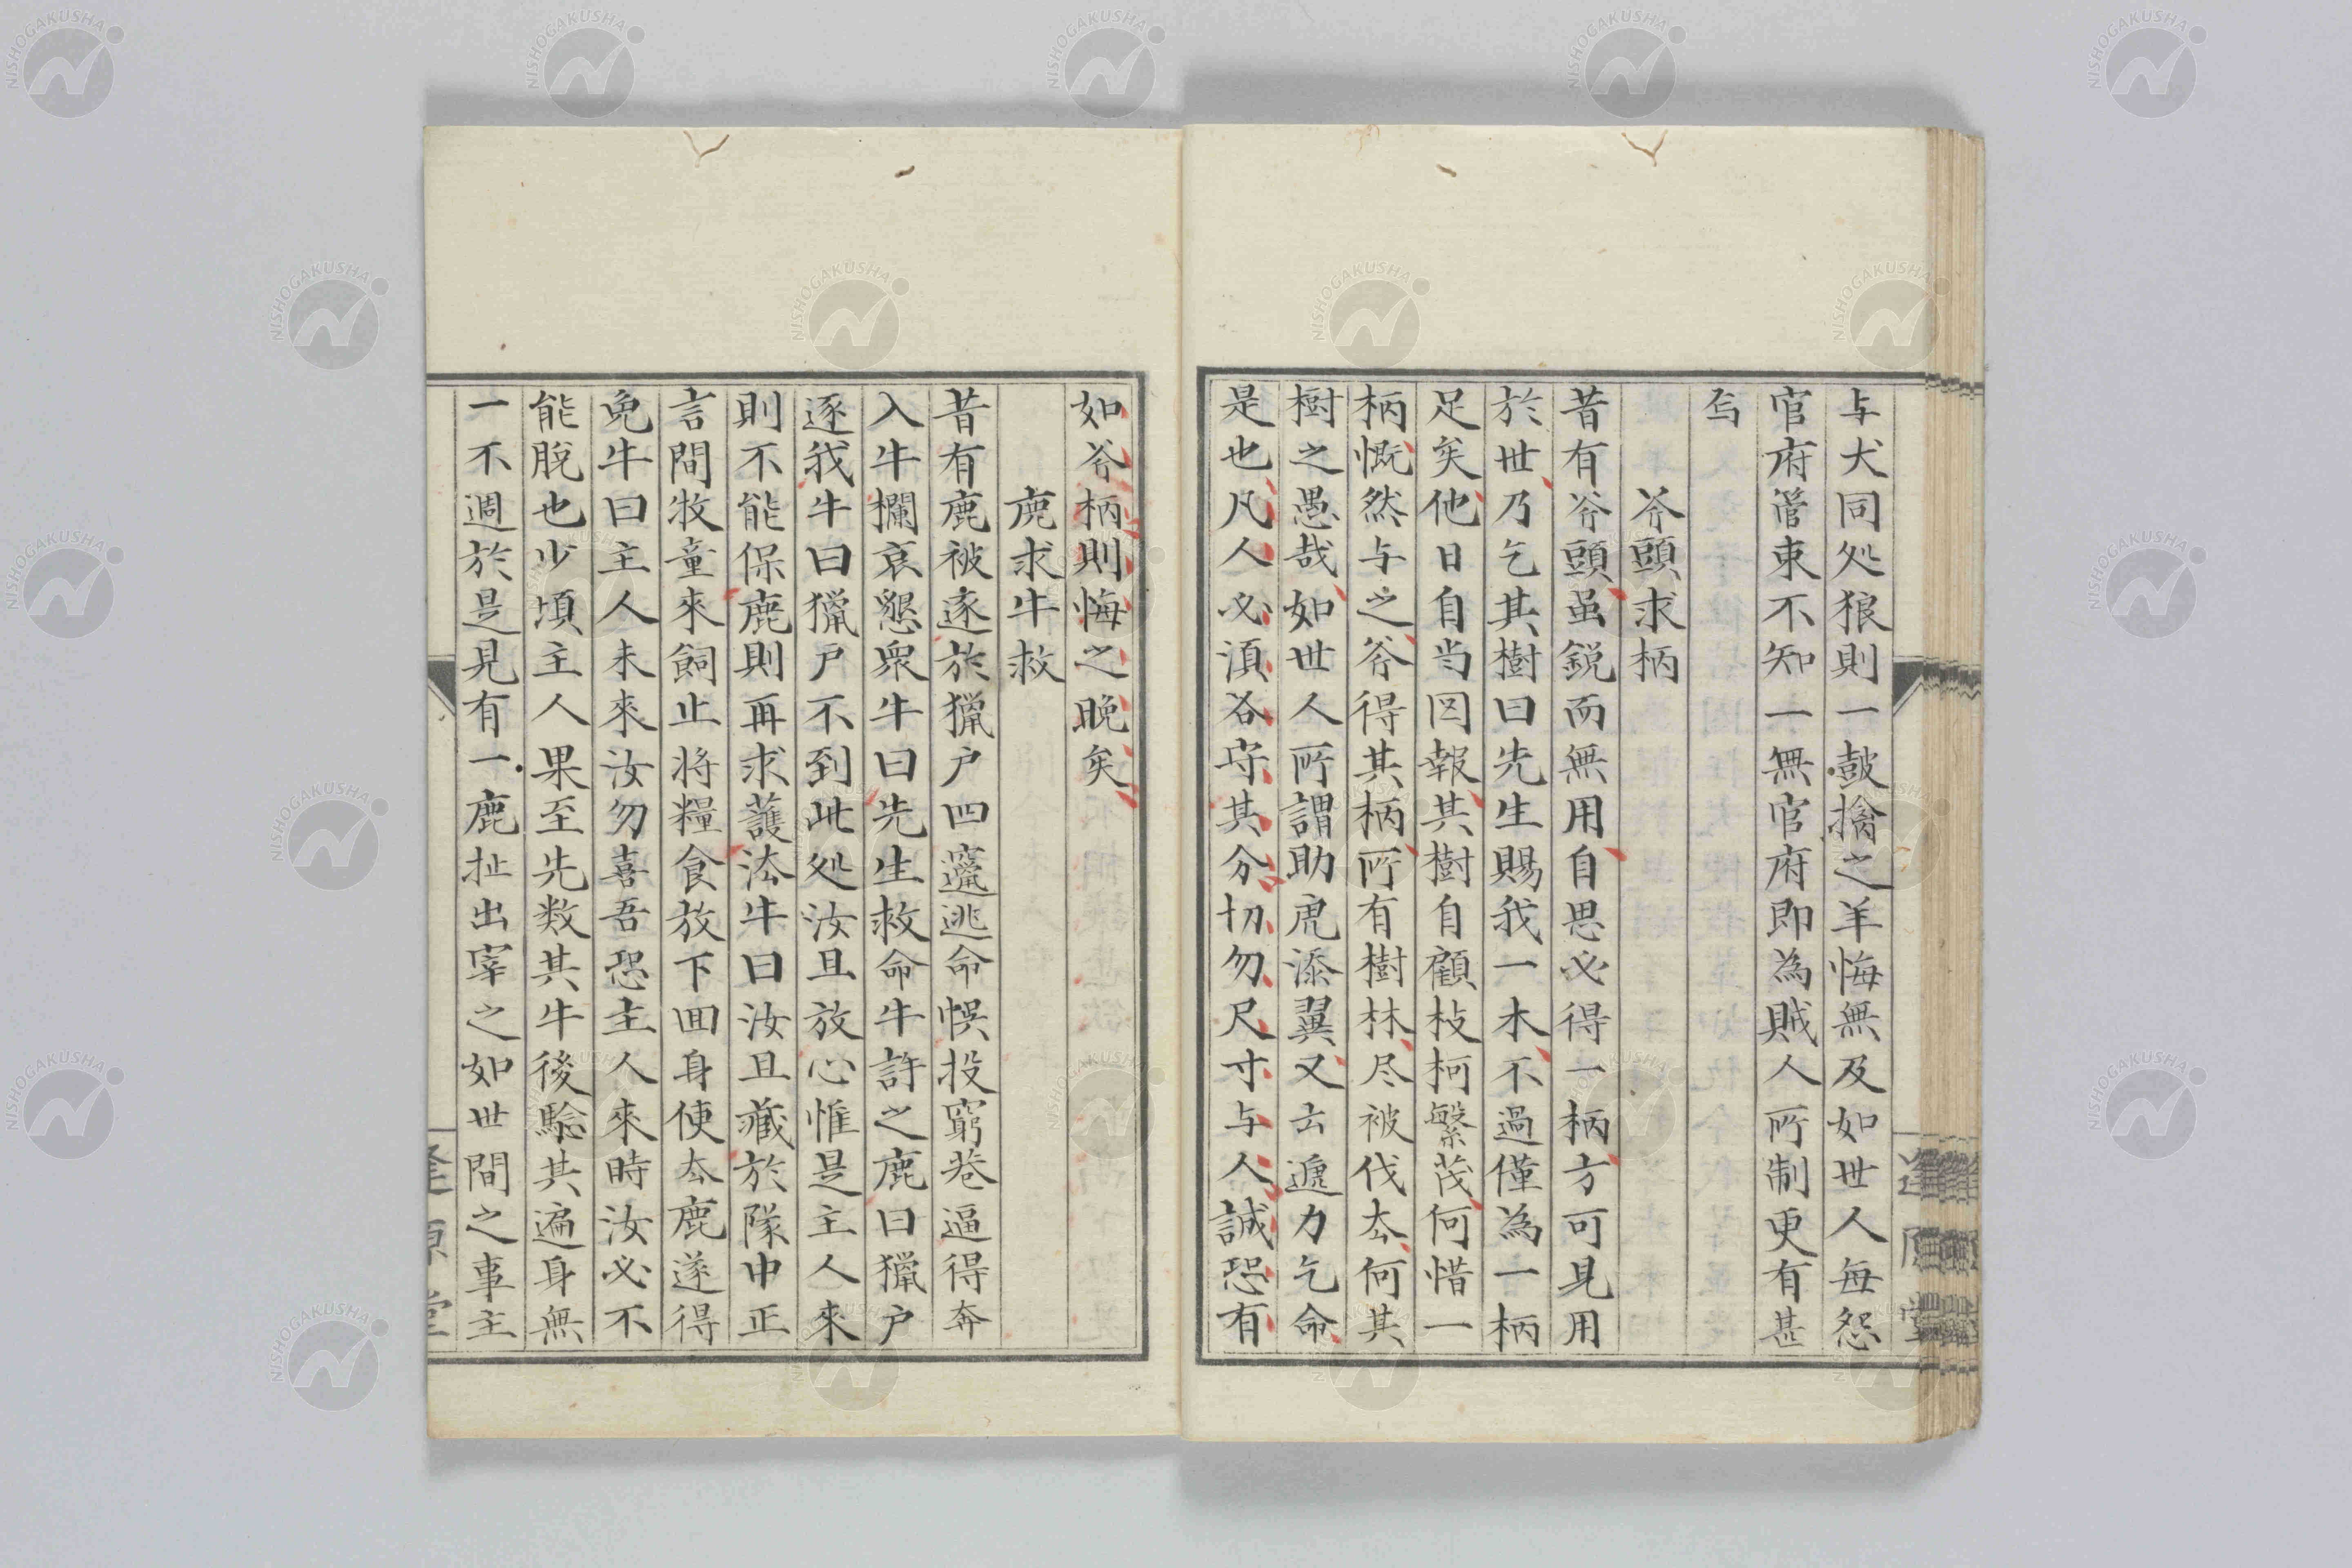 与犬同処狼則一鼓擒之羊悔無及如世人毎怨
官府管束不知一無官府即為賊人所制更有甚
焉
斧頭求柄
昔有斧頭虽鋭而無用自思必得一柄方可見用
於世乃乞其樹曰先生賜我一木不過僅為一柄
足矣他日自当図報其樹自顧枝柯繁茂何惜一
柄慨然与之斧得其柄所有樹林尽被伐去何其
樹之愚哉如世人所謂助虎添翼又云遞刀乞命
是也凡人必須各守其分切勿尺寸与人誠恐有
如斧柄則悔之晚矣
鹿求牛救
昔有鹿被逐於獵戸四邊逃命悞投窮巷逼得奔
入牛欄哀懇衆牛曰先生救命牛許之鹿曰獵戸
逐我牛曰獵戸不到此処汝且放心惟是主人來
則不能保鹿則再求護法牛曰汝且藏於隊中正
言間牧童來飼止将糧食放下囬身便去鹿遂得
免牛曰主人未來汝勿喜吾恐主人來時汝必不
能脱也少頃主人果至先数其牛後驗其遍身無
一不週於是見有一鹿扯出宰之如世間之事主
逢源堂
NISHOGAKUSHA